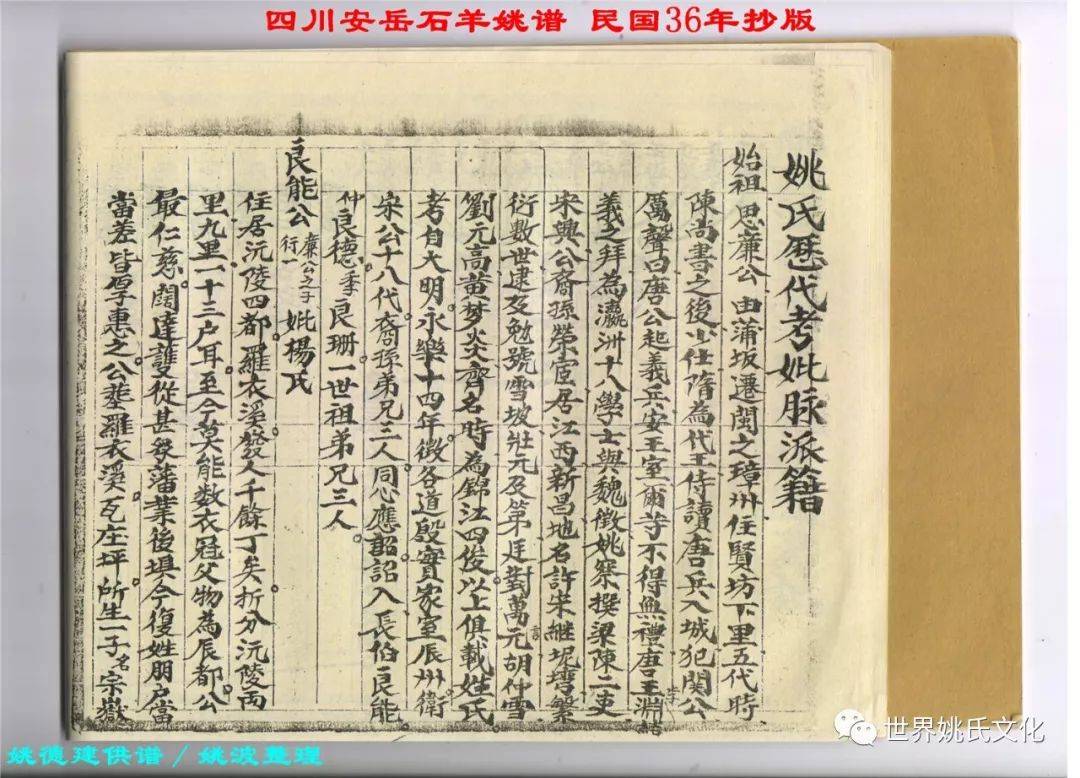 四川安岳石羊姚谱 民国36年抄版
姚氏歷代考妣脉派籍
始祖思廉公由蒲坂遷閩之璋州住賢坊下里五代時
陳尚書之後少仕隋為代王侍讀唐兵入城犯関公
厲聲曰唐公起義兵安王室爾等不得無禮唐王淵
義之拜為瀛洲十八學士與魏徵姚察撰梁陳二吏
宋興公裔孫榮宦居江西新昌地名許宋継坭塆繁
衍數世逮及勉號雪坡壯元及第廷對萬言元胡仲雪
劉元高黄梦炎齊名時為錦江四俊以上俱載姓氏
考自大明永樂十四年徵各道殷實家室辰州衛
宗公十八代裔孫弟兄三人同心應韶詔入長伯良能
仲良德季良珊一世祖弟兄三人
良能公 廉公之子行一 妣楊氏
住居沅陵四都羅衣溪發人千餘丁矣折分沅陵兩
里九里一十三户耳至今莫能数衣冠父物為辰都公
最仁慈闊達讙從甚衆藩業後填今復姓朋户當
當差皆厚惠之公塟羅衣溪瓦庄坪所生一子名宗
姚德建供谱/姚波整理
世界姚氏文化